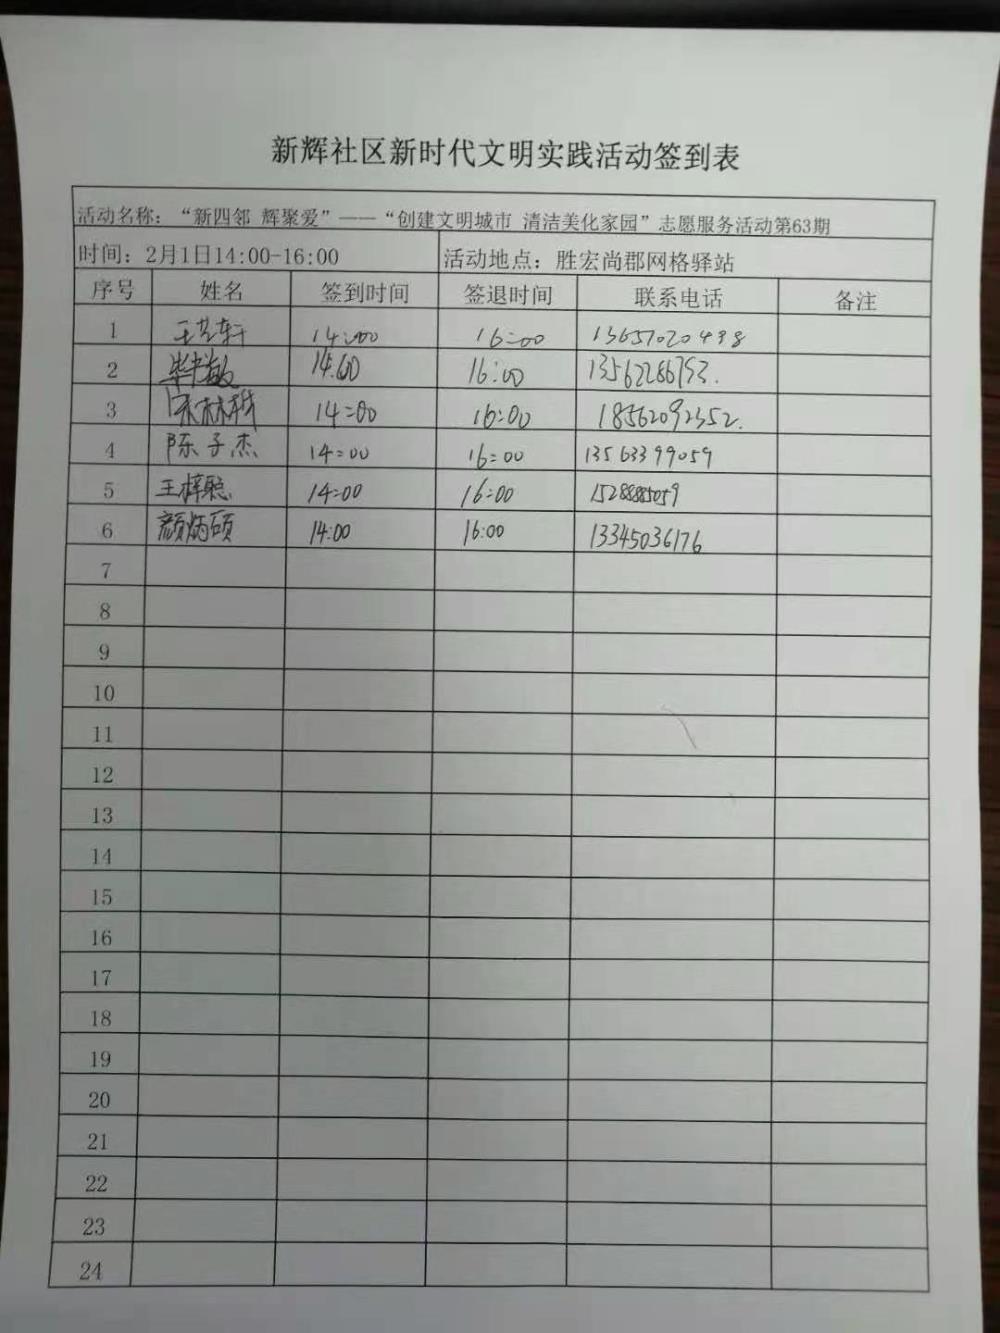 新辉社区新时代文明实践活动签到表
活动名称：“新四邻 辉聚爱”——“创建文明城市 清洁美化家园”志愿服务活动第63期
时间：2月1日14:00-16:00 活动地点：胜宏尚郡网格驿站
序号 姓名 签到时间 签退时间 联系电话 备注
1 14:00 16:00
2 14:00 16:00 13562286753.
3 14:00 16:00 18562092352.
4 陈子杰 14:00 16:00 13563399059
5 王梓聪 14:00 16:00 15288885059
6 颜炳硕 14:00 16:00 13345036176
7
8
9
10
11
12
13
14
15
16
17
18
19
20
21
22
23
24